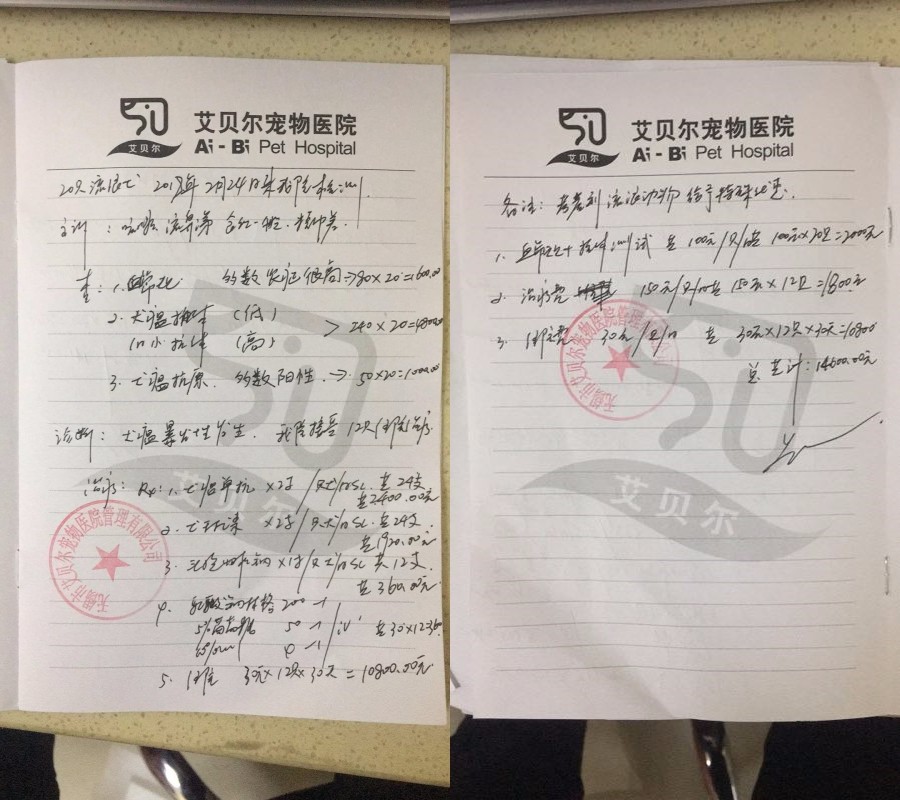 艾贝尔
艾贝尔宠物医院
Ai-Bi Pet Hospital
20只流浪犬 2018年2月24日来我院检测.
主诉: 咳嗽 流鼻涕
查: 1. 血常规 多数炎症很高 → 80×20=1600.00
2. 犬瘟抗体 (低)
细小抗体 (高) > 240×20=4800.00
3. 犬瘟抗原. 多数阳性. → 50×20=1000.00
诊断: 犬瘟暴发性发生. 我院接受12只住院治疗.
治疗: Rx: 1. 犬瘟单抗 ×2支/只犬/日 SC. 共24支
共2400.00元
2. 犬 ×2支/只犬/日 SC. 共24支.
共1920.00元
3. 头孢 钠 ×1支/只犬/日 SC 共12支.
共360.00元
4. 乳酸林格 200
5%葡萄糖 50 iv 共30×12=360
5. 住院 30元×12只×30天=10800.00元
无锡市艾贝尔宠物医院管理有限公司
艾贝尔
艾贝尔
艾贝尔宠物医院
Ai-Bi Pet Hospital
备注: 考虑到流浪动物给予特殊处理.
1. 血常规+抗体测试 共100元/只/次 共100元×20只=2000元
2. 治疗费 150元/只/日 共150元×12只=1800元
3. 住院费 30元/只/日 共30元×12只×30天=10800
总共计: 14600.00元
无锡市艾贝尔宠物医院管理有限公司
艾贝尔